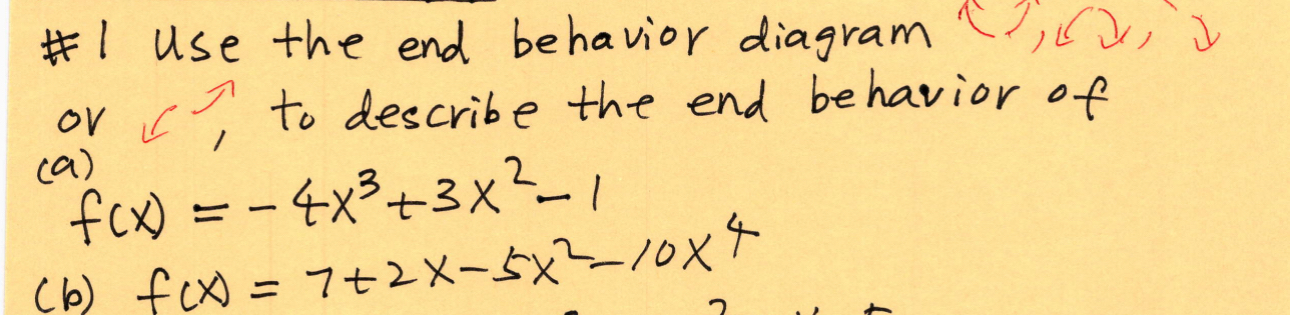 #1 Use the end behavior diagram ↖↗, ↙↘, ↖↘
or ↙↗, to describe the end behavior of
(a)
f(x) = -4x³+3x²-1
(b) f(x) = 7+2x-5x²-10x⁴